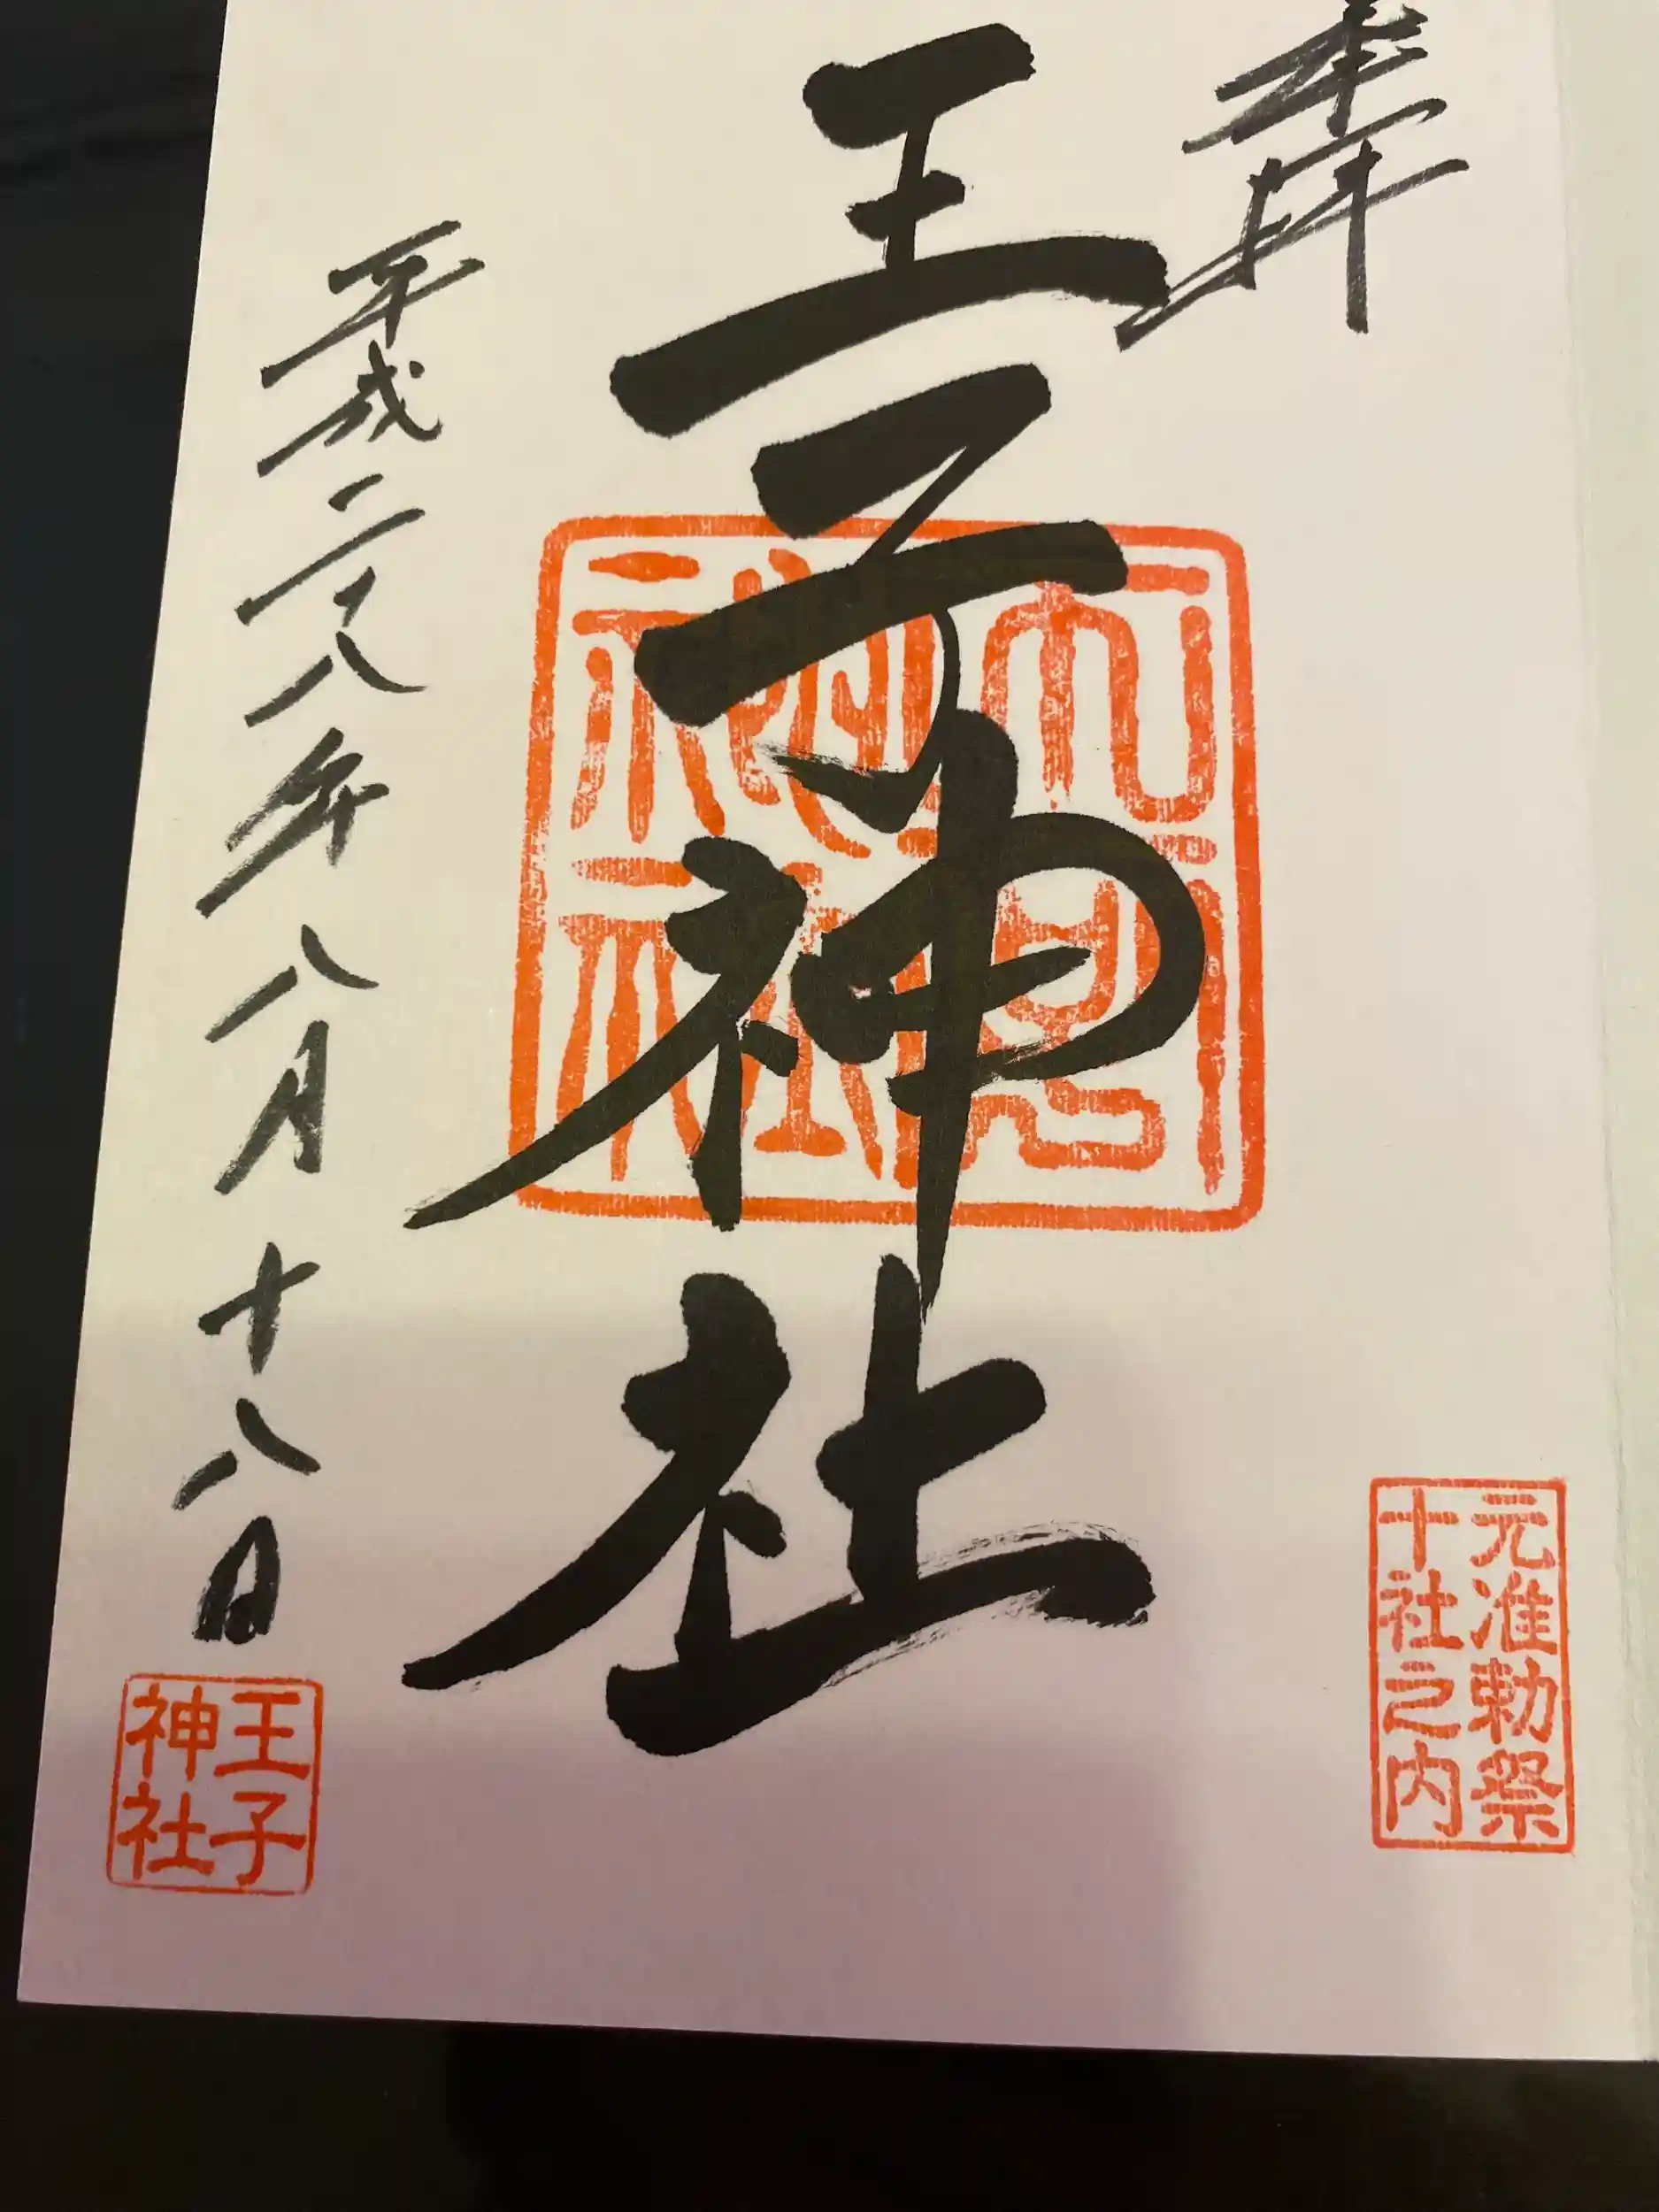 奉拝
元准勅祭
十社之内
王子神社
平成二十八年八月十八日
王子
神社